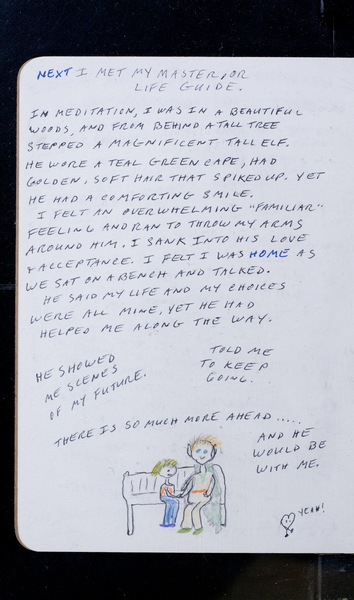 NEXT I MET MY MASTER, OR
LIFE GUIDE.
IN MEDITATION, I WAS IN A BEAUTIFUL
WOODS, AND FROM BEHIND A TALL TREE
STEPPED A MAGNIFICENT TALL ELF.
HE WORE A TEAL GREEN CAPE, HAD
GOLDEN, SOFT HAIR THAT SPIKED UP. YET
HE HAD A COMFORTING SMILE.
I FELT AN OVERWHELMING "FAMILIAR"
FEELING AND RAN TO THROW MY ARMS
AROUND HIM. I SANK INTO HIS LOVE
& ACCEPTANCE. I FELT I WAS HOME AS
WE SAT ON A BENCH AND TALKED.
HE SAID MY LIFE AND MY CHOICES
WERE ALL MINE, YET HE HAD
HELPED ME ALONG THE WAY.
HE SHOWED
ME SCENES
OF MY FUTURE.
TOLD ME
TO KEEP
GOING.
THERE IS SO MUCH MORE AHEAD.....
AND HE
WOULD BE
WITH ME.
YEAH!